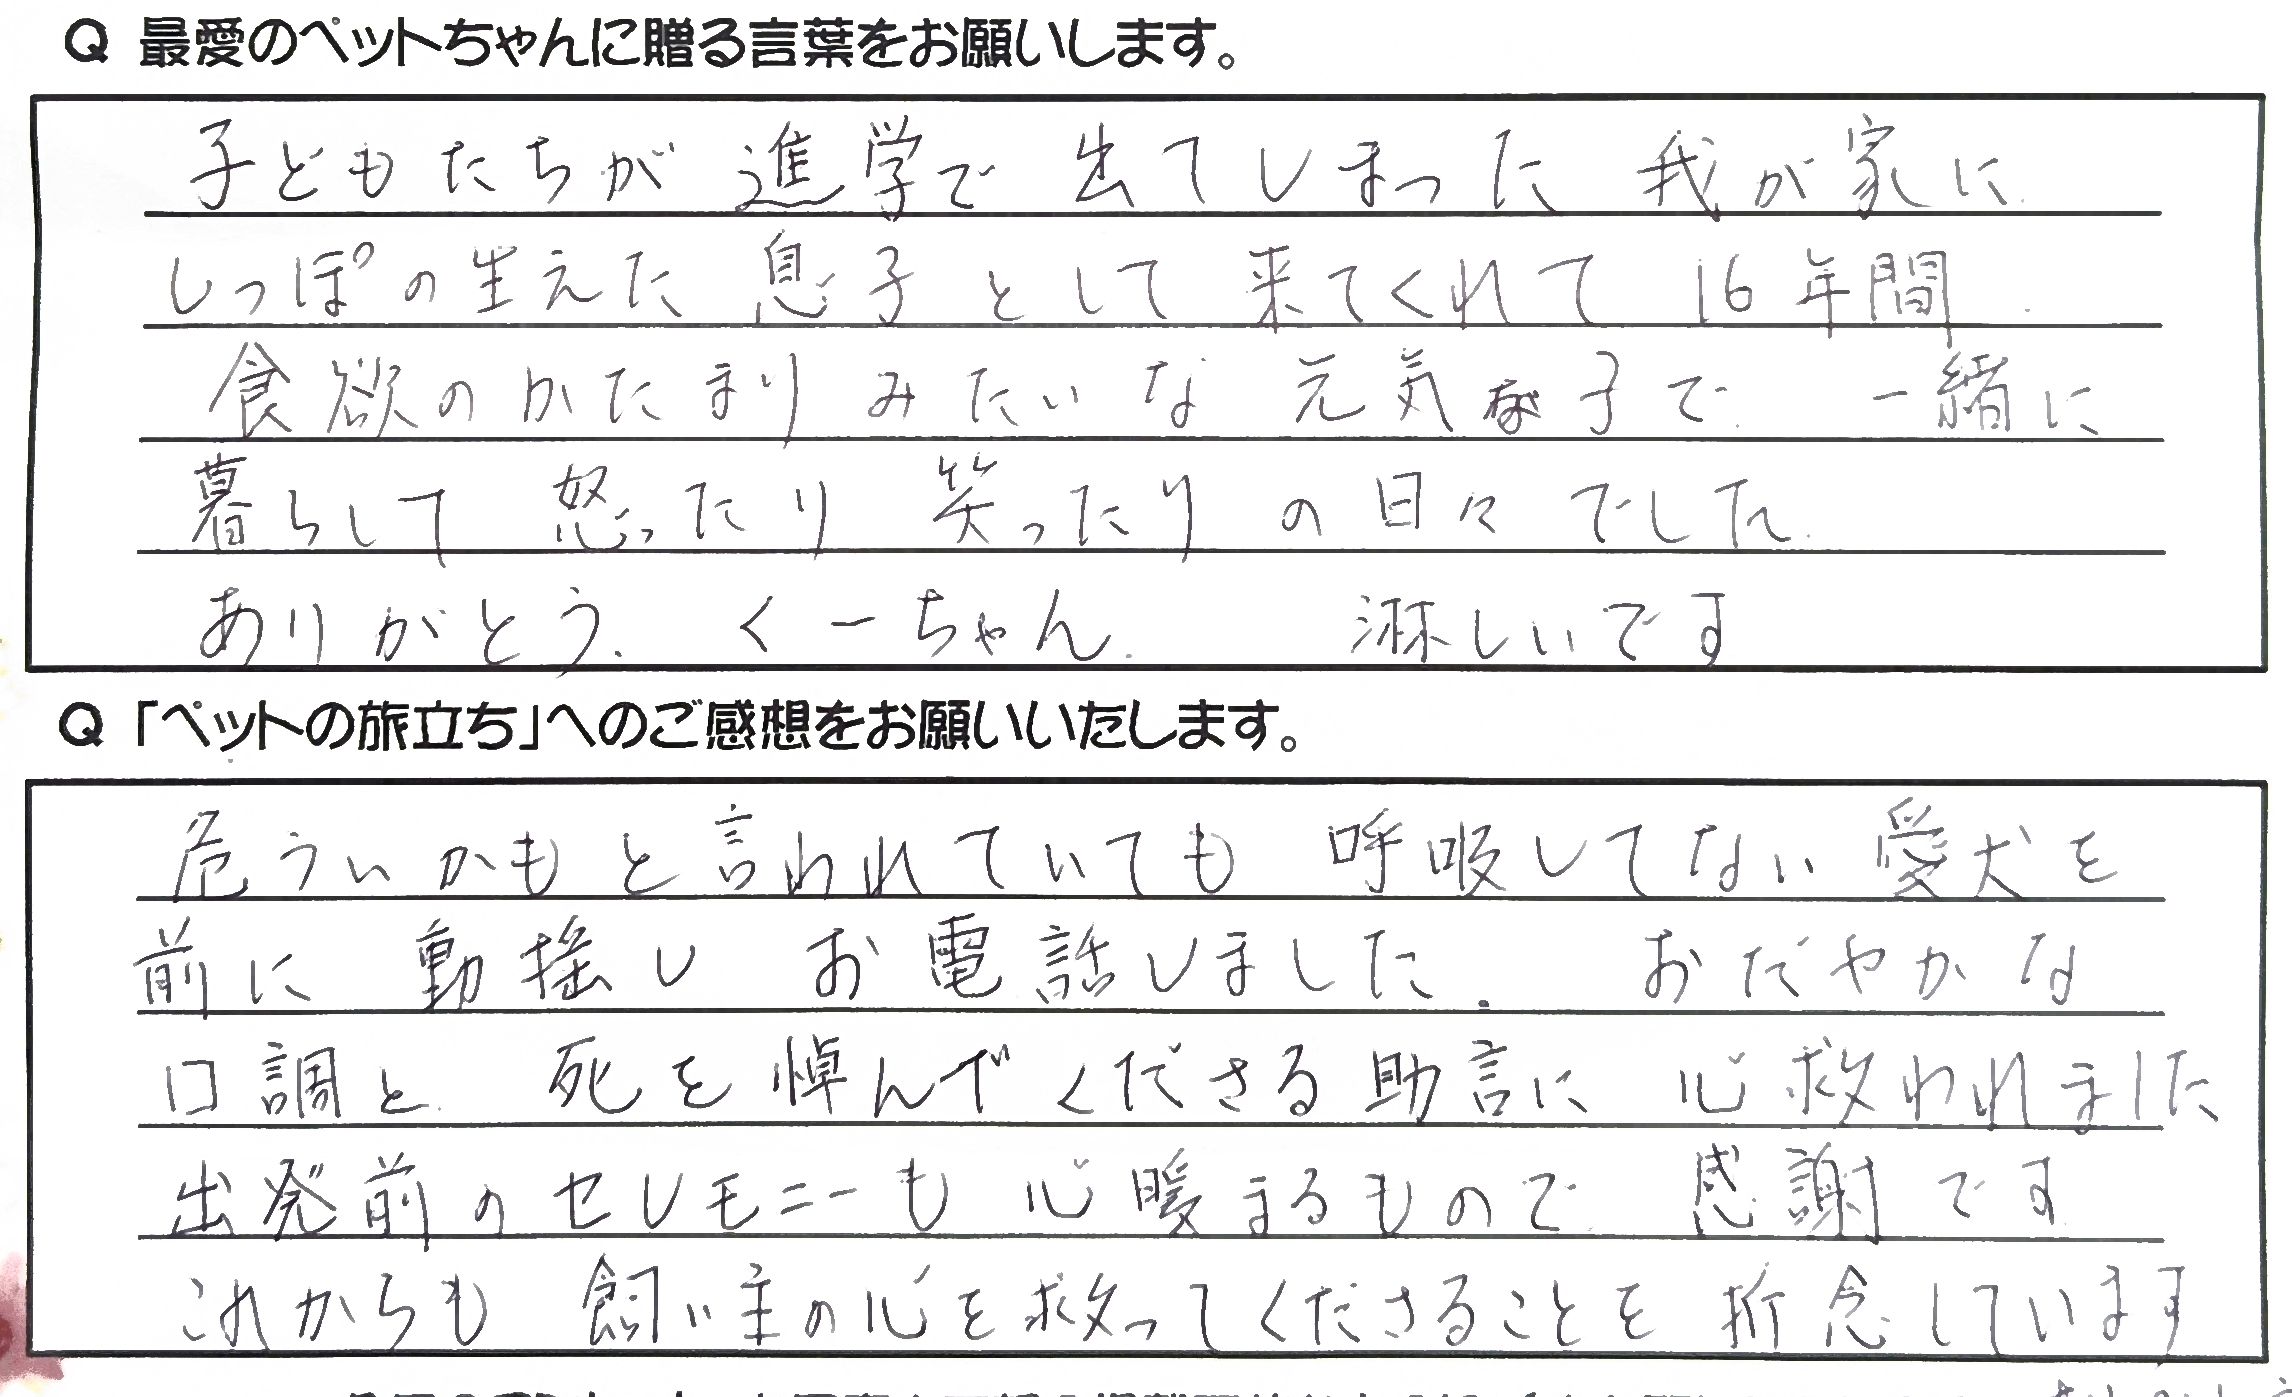 Q 最愛のペットちゃんに贈る言葉をお願いします。
子どもたちが 進学で 出てしまった 我が家に
しっぽの生えた 息子として 来てくれて 16年間
食欲のかたまりみたいな 元気な子で 一緒に
暮らして 怒ったり 笑ったりの日々でした.
ありがとう. くーちゃん. 淋しいです
Q 「ペットの旅立ち」へのご感想をお願いいたします。
危ういかもと言われていても 呼吸してない愛犬を
前に 動揺し お電話しました. おだやかな
口調と 死を悼んでくださる助言に 心救われました
出発前のセレモニーも 心暖まるもので 感謝です
これからも 飼い主の心を救ってくださることを 祈念しています